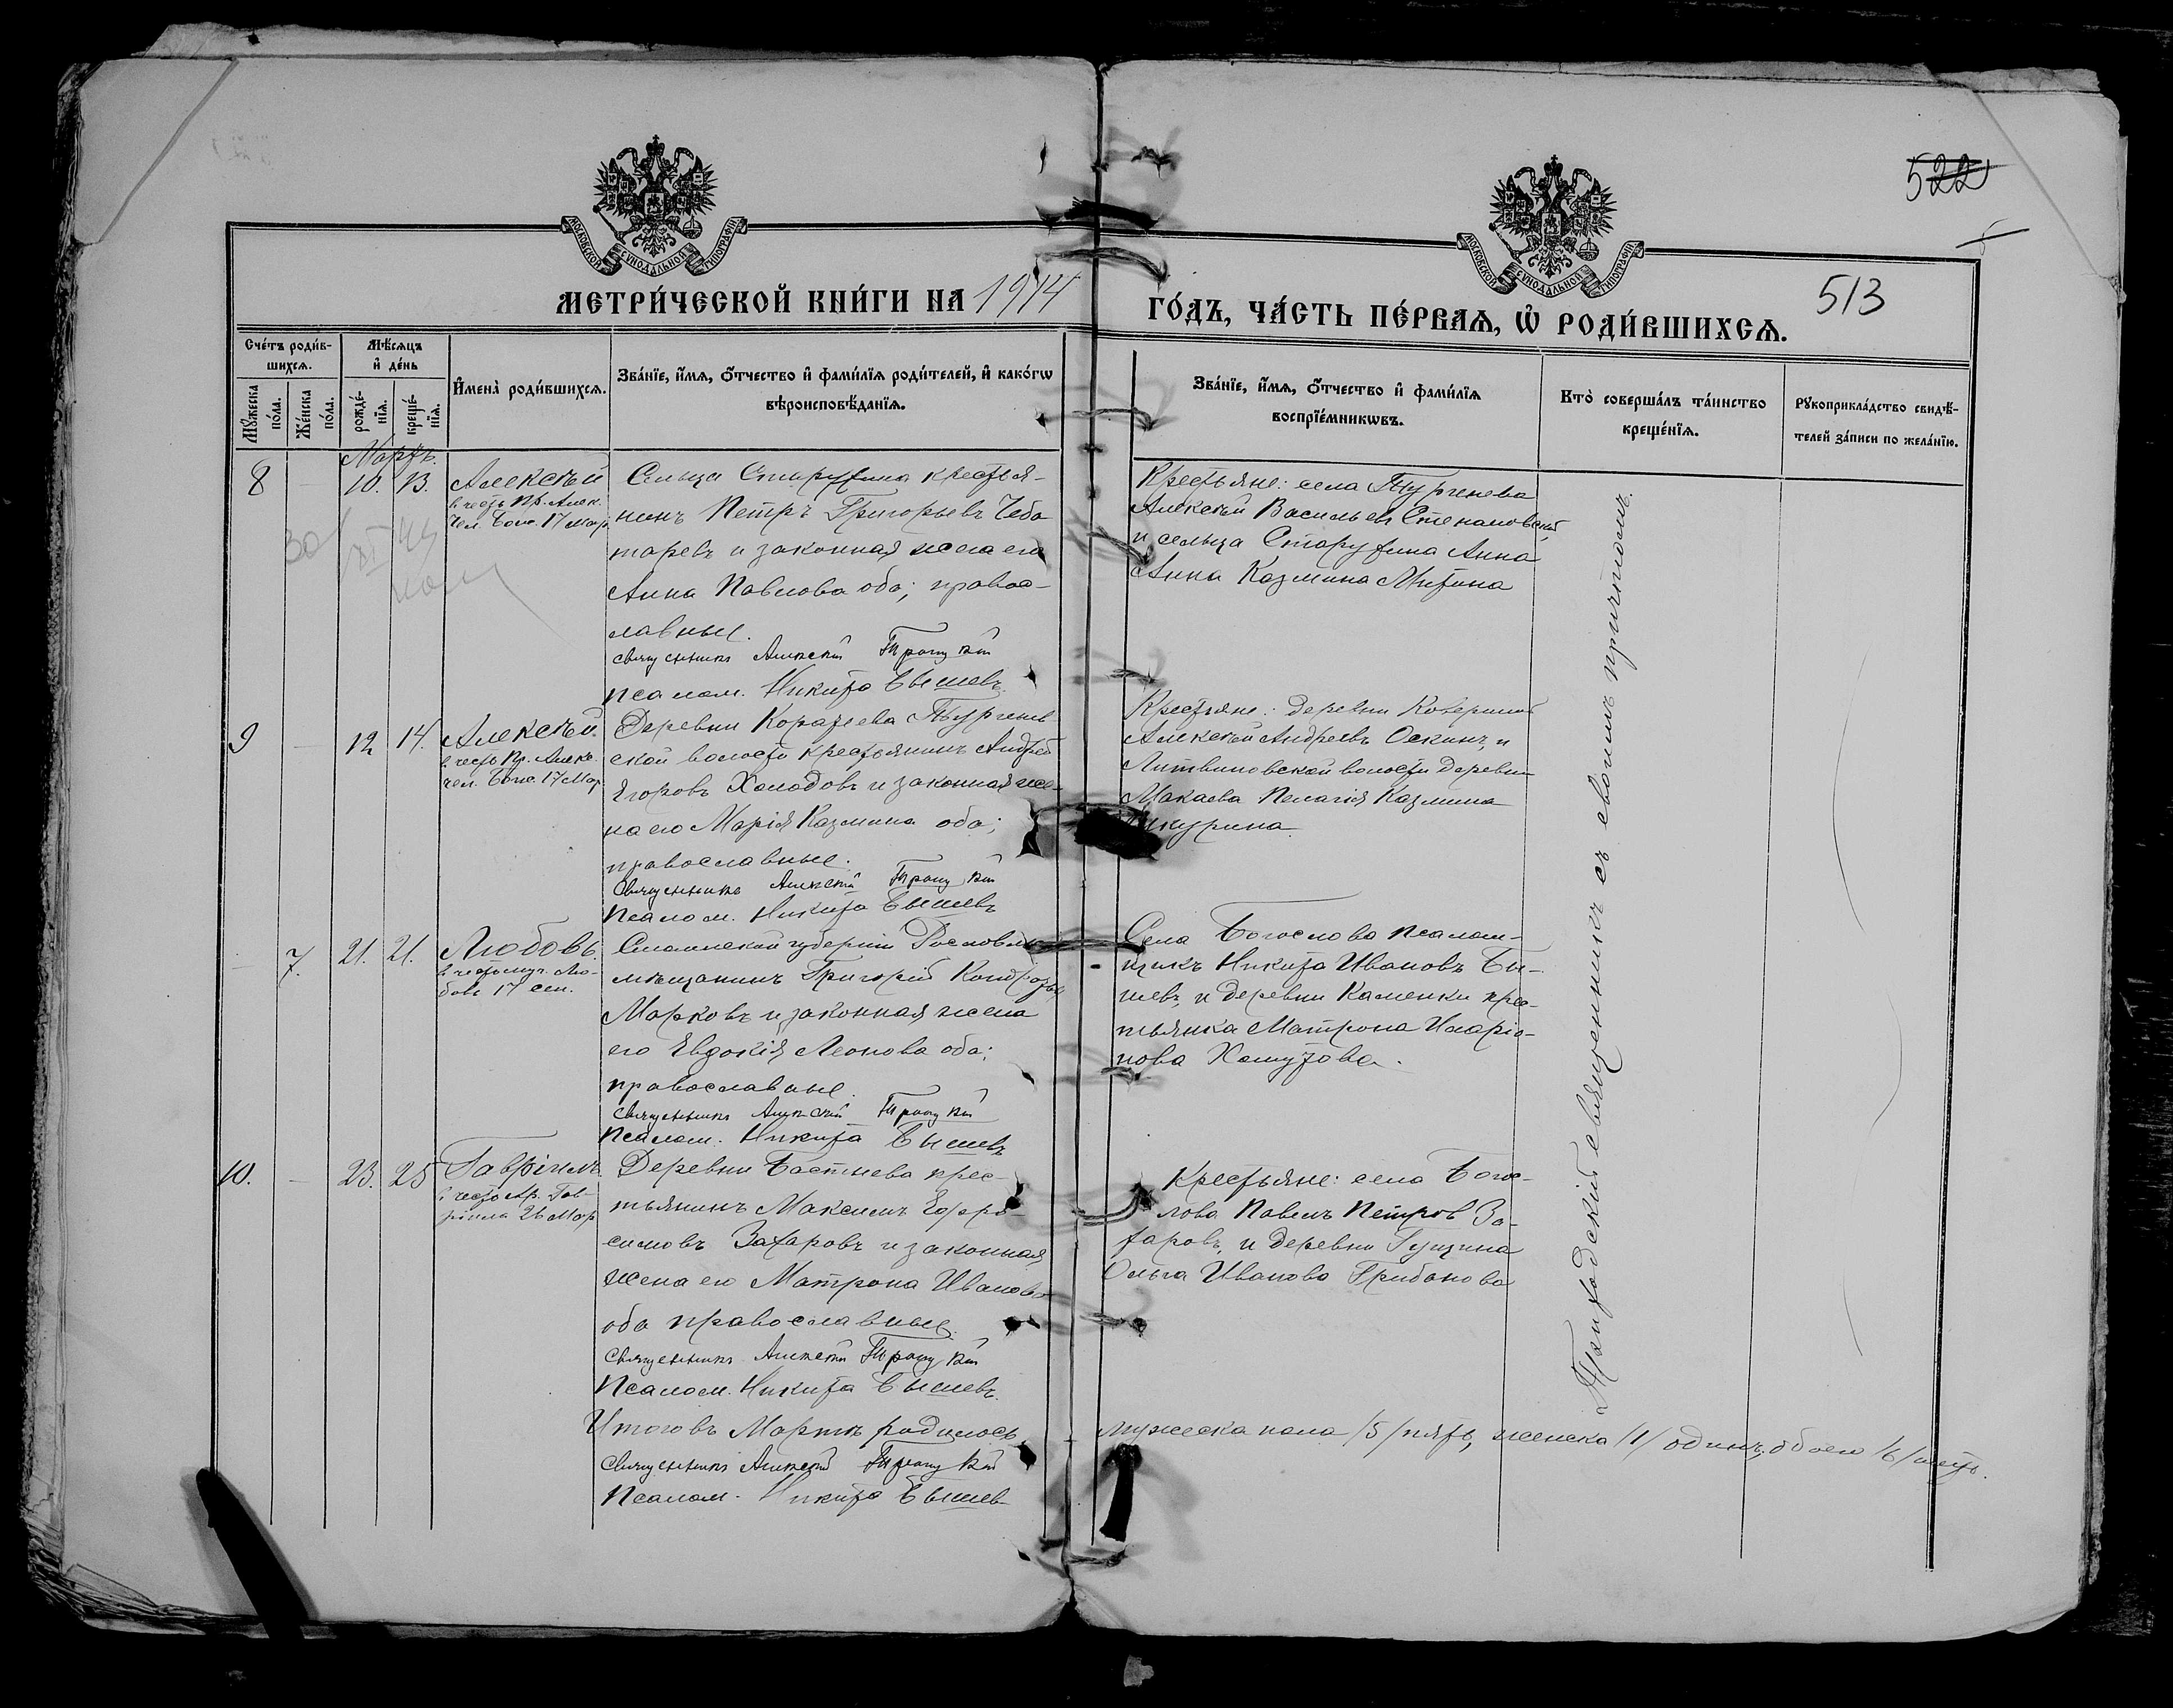 522
513
МОСКОВСКОЙ СѴНОДАЛЬНОЙ ТИПОГРАФІИ
МОСКОВСКОЙ СѴНОДАЛЬНОЙ ТИПОГРАФІИ
МЕТРИ́ЧЕСКОЙ КНИ́ГИ НА 1914
ГО́ДЪ, ЧА́СТЬ ПЕ́РВАѦ, Ѡ҆ РОДИ́ВШИХСѦ.
Сче́тъ роди́в-
шихсѧ.
Мꙋ́жеска
по́ла.
Же́нска
по́ла.
Мѣ́сѧцъ
и҆ де́нь
рожде́-
нїѧ.
креще́-
нїѧ.
И҆мена̀ роди́вшихсѧ.
Зва́нїе, и҆́мѧ, ѻ҆́тчество и҆ фами́лїѧ роди́телей, и҆ како́гѡ
вѣроисповѣ́данїѧ.
Зва́нїе, и҆́мѧ, ѻ҆́тчество и҆ фами́лїѧ
воспрїе́мникѡвъ.
Кто̀ соверша́лъ та́инство
креще́нїѧ.
Рꙋкоприкла́дство свидѣ́-
телей за́писи по жела́нїю.
Мартъ.
8 – 10. 13. Алексѣй
въ честь пр. Алек.
чел. Бож. 17 Мар.
Сельца Старухина крестья-
нинъ Петръ Григорьевъ Чебо
таревъ и законная жена его
Анна Павлова оба; правос-
лавные.
Священникъ Алексей Троицкій
Псалом. Никита Бышевъ.
Крестьяне: села Тургенева
Алексѣй Васильевъ
и сельца Старухина Анна
Анна Казмина Митина
9 – 12 14. Алексѣй.
въ честь Пр. Алекс.
чел. Бож. 17 Мар.
Деревни Коратеева Тургенев-
ской волости крестьянинъ Андрей
Егоровъ Холодовъ и законная же-
на его Марія Казмина оба;
православные.
Священникъ Алексей Троицкій
Псалом. Никита Бышевъ
Крестьяне: деревни
Алексѣй Андреевъ Оскинъ, и
Литвиновской волости деревни
Макаева Пелагія Казмина
– 7. 21. 21. Любовь.
въ честь муч. Лю-
бовь 17 сен.
Смоленской губерніи Рославль
мѣщанинъ Григорій Кондратьев
Марковъ и законная жена
его Евдокія Леонова оба;
православные.
Священникъ Алексей Троицкій
Псалом. Никита Бышевъ
Села Богослова псалом-
щикъ Никита Ивановъ Бы-
шевъ, и деревни Каменки крес-
тьянка Матрона Иларіо-
нова Хомутова.
10. – 23. 25 Гавріилъ
въ честь Ар. Гав-
ріила 26 Мар.
Деревни Бастыева крес-
тьянинъ Максимъ Ефро-
симовъ Захаровъ и законная
жена его Матрона Иванова
оба православные.
Священникъ Алексей Троицкій
Псалом. Никита Бышевъ.
Крестьяне: села Богос-
лова Павелъ Петров За-
харовъ, и деревни Гущина
Ольга Иванова Грибанова
священникъ съ своимъ причтомъ.
Итого въ Мартѣ родилось
мужеска пола /5/ пять, женска /1/ одинъ, обоего /6/ шесть.
Священникъ Алексей Троицкій
Псалом. Никита Бышев